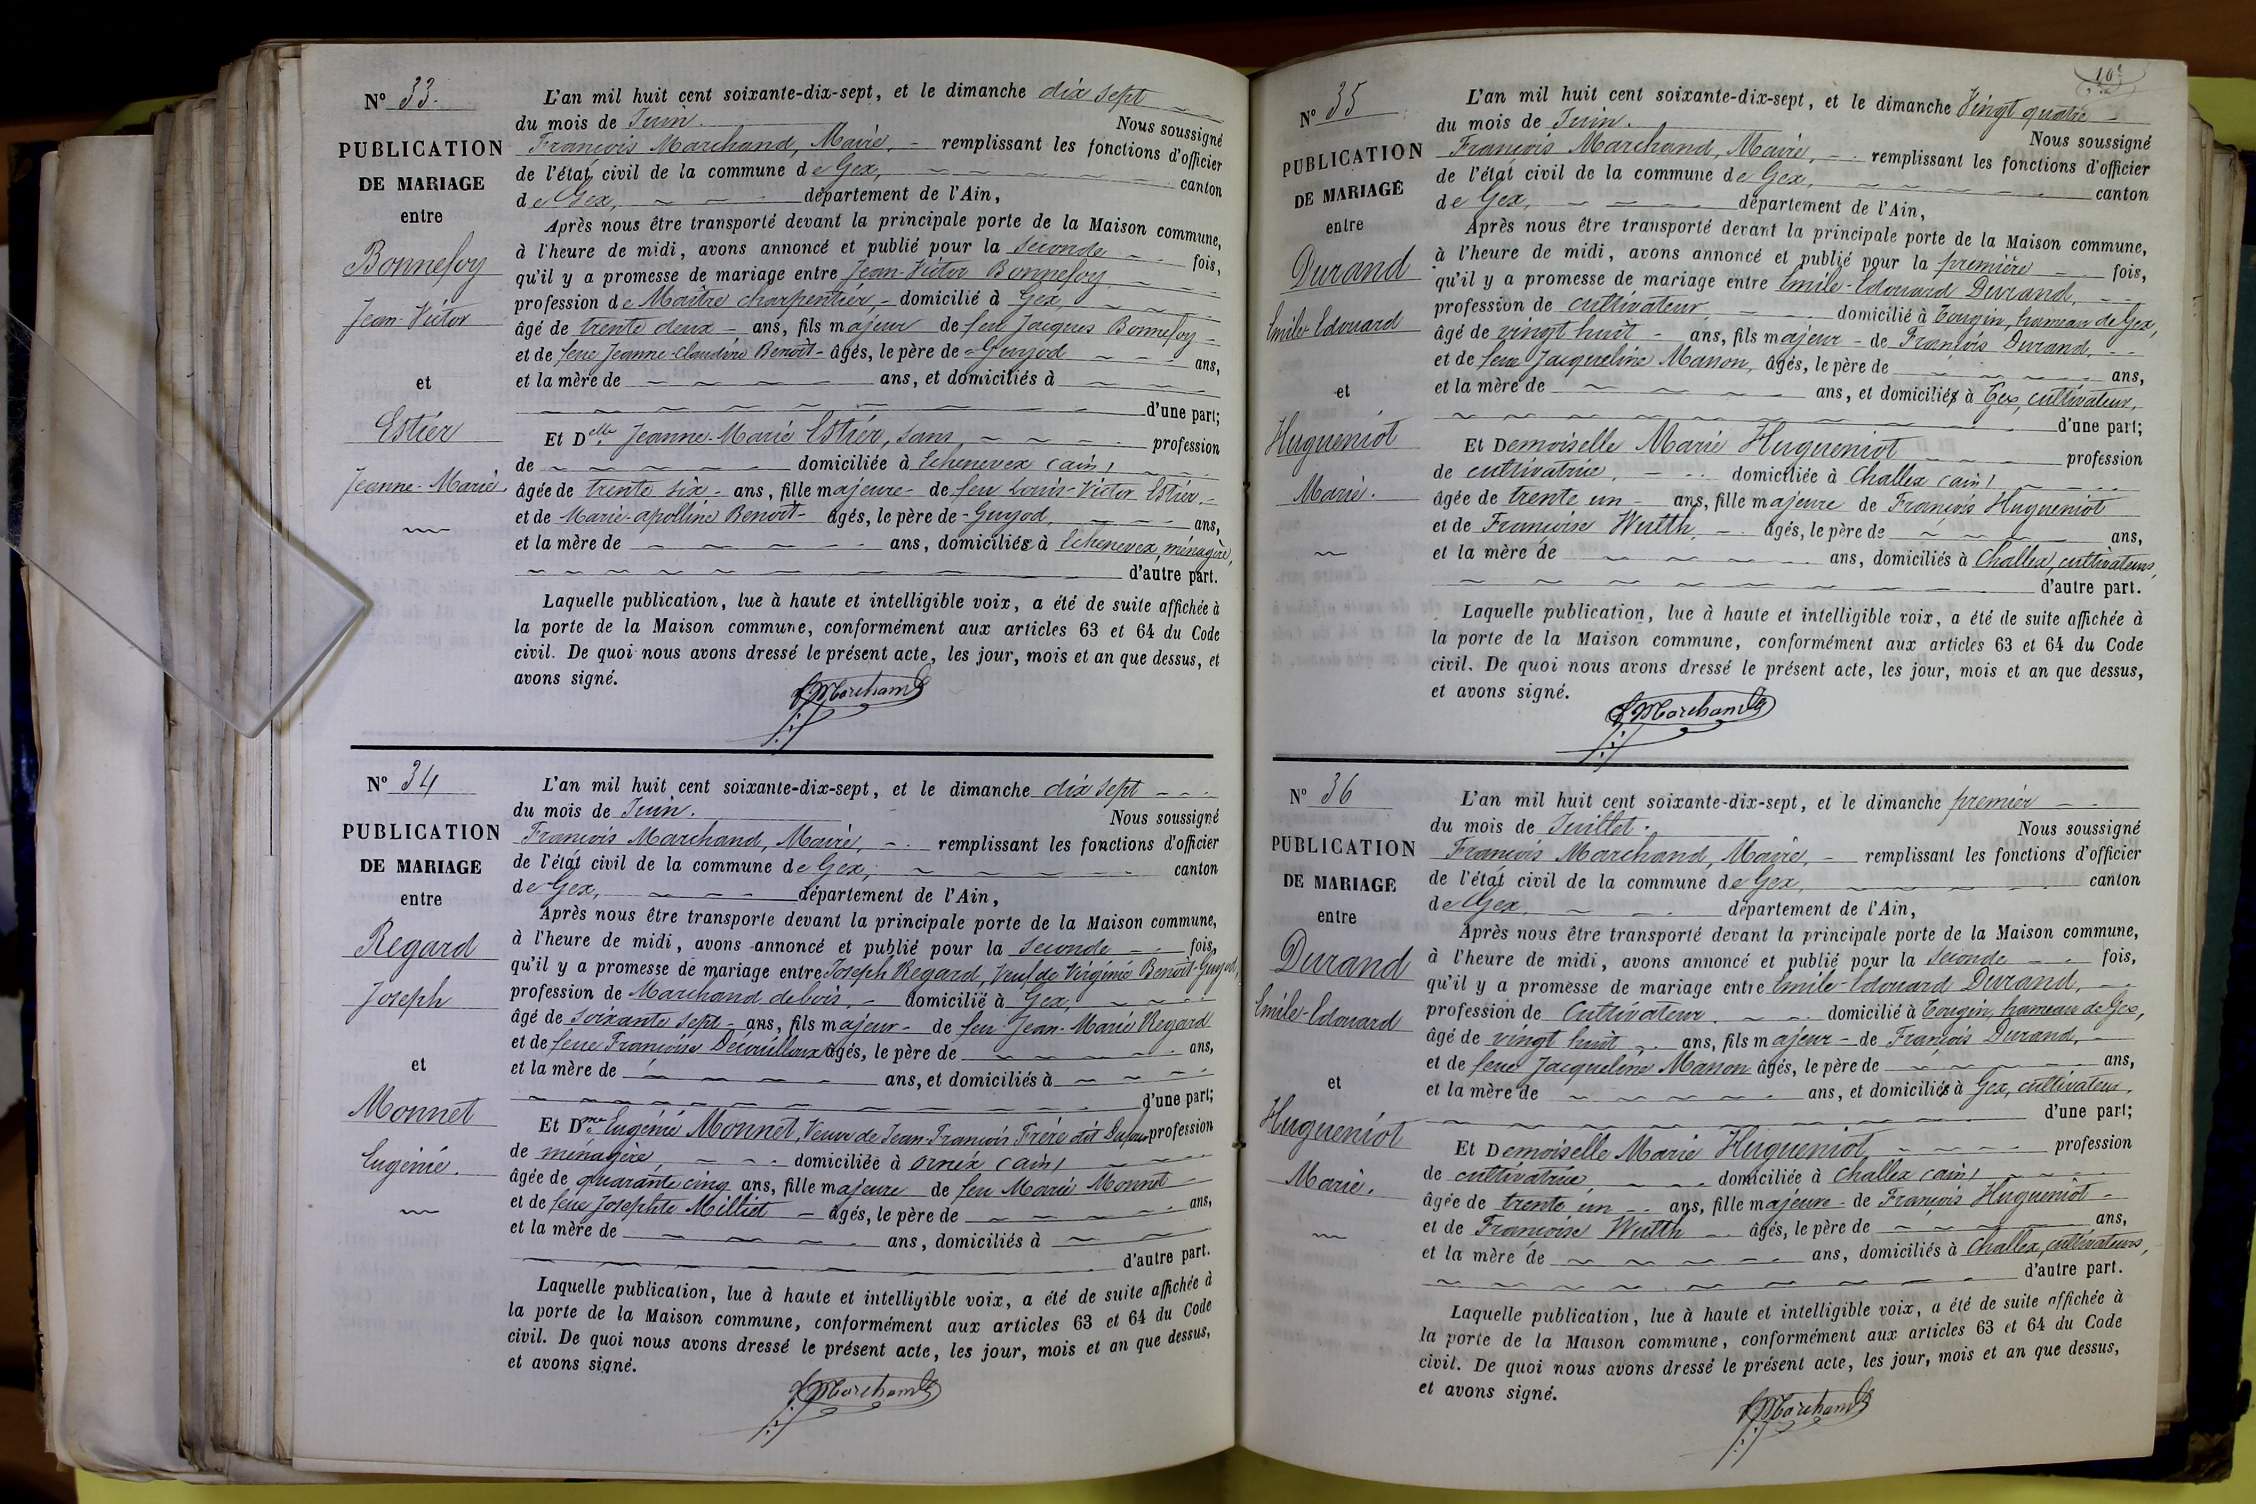 N° 33.
PUBLICATION
DE MARIAGE
entre
Bonnefoy
Jean-Victor
et
Estier
Jeanne-Marie
L'an mil huit cent soixante-dix-sept, et le dimanche dix sept
du mois de Juin. Nous soussigné
François Marchand, Maire, remplissant les fonctions d'officier
de l'état civil de la commune de Gex, canton
de Gex, département de l'Ain,
Après nous être transporté devant la principale porte de la Maison commune,
à l'heure de midi, avons annoncé et publié pour la seconde fois,
qu'il y a promesse de mariage entre Jean-Victor Bonnefoy
profession de Maître charpentier domicilié à Gex,
âgé de trente deux ans, fils majeur de feu Jacques Bonnefoy
et de feue Jeanne-Claudine Benoît- âgés, le père de -Guyod ans,
et la mère de ans, et domiciliés à
d'une part;
Et Delle Jeanne-Marie Estier, sans profession
de domiciliée à Echenevex (ain)
âgée de trente six ans, fille majeure de feu Louis-Victor Estier,
et de Marie-apolline Benoit- âgés, le père de -Guyod, ans,
et la mère de ans, domiciliés à Echenevex, ménagère,
d'autre part.
Laquelle publication, lue à haute et intelligible voix, a été de suite affichée à
la porte de la Maison commune, conformément aux articles 63 et 64 du Code
civil. De quoi nous avons dressé le présent acte, les jour, mois et an que dessus, et
avons signé.
F Marchand
N° 34
PUBLICATION
DE MARIAGE
entre
Regard
Joseph
et
Monnet
Eugénie.
L'an mil huit cent soixante-dix-sept, et le dimanche dix sept
du mois de Juin. Nous soussigné
François Marchand, Maire, remplissant les fonctions d'officier
de l'état civil de la commune de Gex, canton
de Gex, département de l'Ain,
Après nous être transporté devant la principale porte de la Maison commune,
à l'heure de midi, avons annoncé et publié pour la seconde fois,
qu'il y a promesse de mariage entre Joseph Regard, Veuf de Virginie Benoît-Guyod,
profession de Marchand de bois, domicilié à Gex,
âgé de soixante sept ans, fils majeur de feu Jean-Marie Regard
et de feue Françoise âgés, le père de ans,
et la mère de ans, et domiciliés à
d'une part;
Et Dme Eugénie Monnet, Veuve de Jean-François Frère dit Dufour profession
de ménagère, domiciliée à ornex (ain)
âgée de quarante cinq ans, fille majeure de feu Marie Monnet
et de feue Josephte Milliet âgés, le père de ans,
et la mère de ans, domiciliés à
d'autre part.
Laquelle publication, lue à haute et intelligible voix, a été de suite affichée à
la porte de la Maison commune, conformément aux articles 63 et 64 du Code
civil. De quoi nous avons dressé le présent acte, les jour, mois et an que dessus,
et avons signé.
F Marchand
10e
N° 35
PUBLICATION
DE MARIAGE
entre
Durand
Emile-Edouard
et
Hugueniot
Marie.
L'an mil huit cent soixante-dix-sept, et le dimanche Vingt quatre
du mois de Juin. Nous soussigné
François Marchand, Maire, remplissant les fonctions d'officier
de l'état civil de la commune de Gex, canton
de Gex, département de l'Ain,
Après nous être transporté devant la principale porte de la Maison commune,
à l'heure de midi, avons annoncé et publié pour la première fois,
qu'il y a promesse de mariage entre Emile-Edouard Durand,
profession de cultivateur, domicilié à Tougin, hameau de Gex,
âgé de vingt huit ans, fils majeur de François Durand,
et de feue Jacqueline Masson, âgés, le père de ans,
et la mère de ans, et domiciliés à Gex, cultivateur,
d'une part;
Et Demoiselle Marie Hugueniot profession
de cultivatrice, domiciliée à Challex (ain)
âgée de trente un ans, fille majeure de François Hugueniot
et de Françoise Wutth, âgés, le père de ans,
et la mère de ans, domiciliés à Challex, cultivateurs,
d'autre part.
Laquelle publication, lue à haute et intelligible voix, a été de suite affichée à
la porte de la Maison commune, conformément aux articles 63 et 64 du Code
civil. De quoi nous avons dressé le présent acte, les jour, mois et an que dessus,
et avons signé.
F Marchand
N° 36
PUBLICATION
DE MARIAGE
entre
Durand
Emile-Edouard
et
Hugueniot
Marie.
L'an mil huit cent soixante-dix-sept, et le dimanche premier
du mois de Juillet. Nous soussigné
François Marchand, Maire, remplissant les fonctions d'officier
de l'état civil de la commune de Gex, canton
de Gex, département de l'Ain,
Après nous être transporté devant la principale porte de la Maison commune,
à l'heure de midi, avons annoncé et publié pour la seconde fois,
qu'il y a promesse de mariage entre Emile-Edouard Durand,
profession de Cultivateur, domicilié à Tougin, hameau de Gex,
âgé de vingt huit ans, fils majeur de François Durand,
et de feue Jacqueline Masson âgés, le père de ans,
et la mère de ans, et domiciliés à Gex, cultivateur,
d'une part;
Et Demoiselle Marie Hugueniot profession
de cultivatrice, domiciliée à Challex (ain)
âgée de trente un ans, fille majeure de François Hugueniot
et de Françoise Wutth âgés, le père de ans,
et la mère de ans, domiciliés à Challex, cultivateurs,
d'autre part.
Laquelle publication, lue à haute et intelligible voix, a été de suite affichée à
la porte de la Maison commune, conformément aux articles 63 et 64 du Code
civil. De quoi nous avons dressé le présent acte, les jour, mois et an que dessus,
et avons signé.
F Marchand